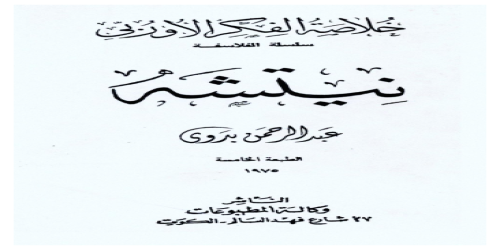 خلاصة الفكر الأوربي
سلسلة الفلاسفة
نيتشه
عبد الرحمن بدوي
الطبعة الخامسة
١٩٧٥
الناشر
وكالة المطبوعات
٢٧ شارع فهد السالم - الكويت